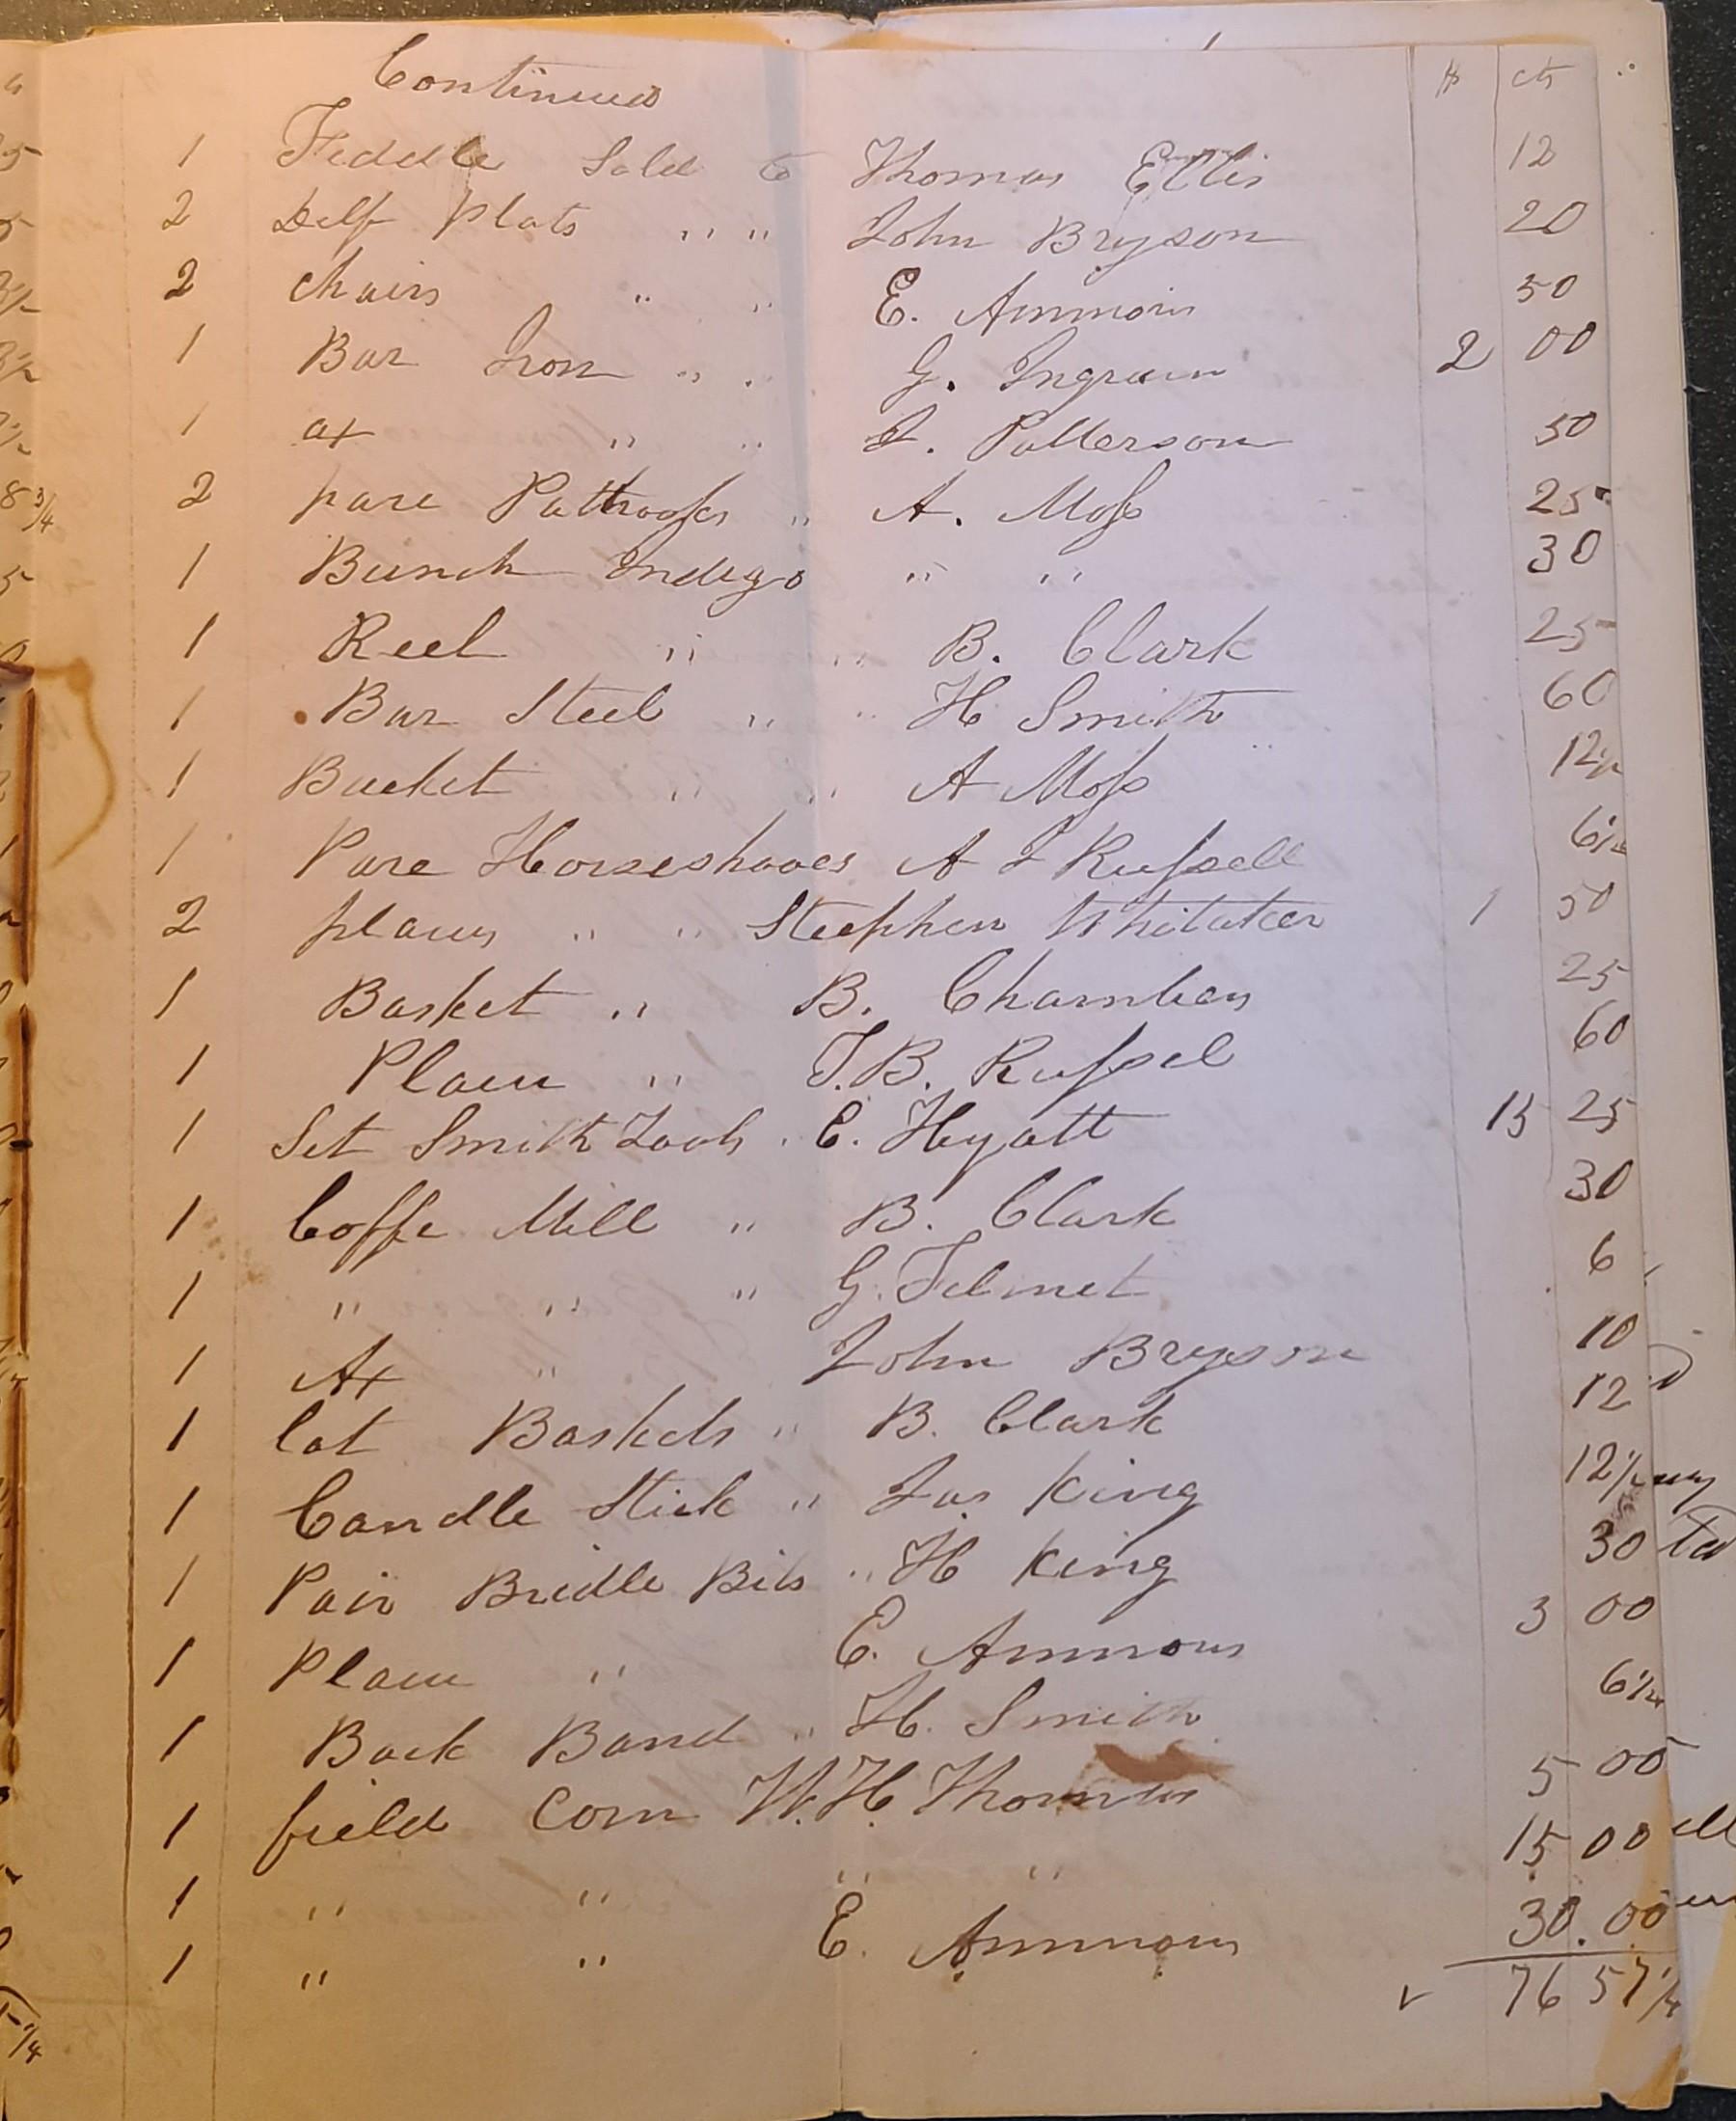 Continued
$ cts
1 Fiddle Sold to Thomas Ellis 12
2 Delf Plats " " John Bryson 20
2 chairs " " E. Ammons 50
1 Bar Iron " " G. Ingram 2 00
1 ax " " J. Patterson 50
2 pare " A. Moss 25
1 Bunch Indigo " " 30
1 Reel " " B. Clark 25
1 Bar Steel " " H Smith 60
1 Bucket " " A Moss 12 1/2
1 Pare Horseshooes A J Russell 6 1/4
2 plains " " Steephen Whitaker 1 50
1 Basket " B. Chambers 25
1 Plain " T.B. Russel 60
1 Set Smith Tools " E. Hyatt 15 25
1 Coffe Mill " B. Clark 30
1 " " " G. Telmet 6
1 Ax " John Bryson 10
1 lot Baskets " B. Clark 12
1 Candle Stick " Jas King 12 1/2
1 Pair Bridle Bits " H King 30
1 Plain " E. Ammons 3 00
1 Back Band " H. Smith 6 1/4
1 field Corn W.H. Thomas 5 00
1 " " " " 15 00
1 " " E. Ammons 30.00
76 57 1/4